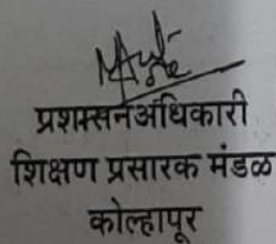 प्रशासनअधिकारी
शिक्षण प्रसारक मंडळ
कोल्हापूर